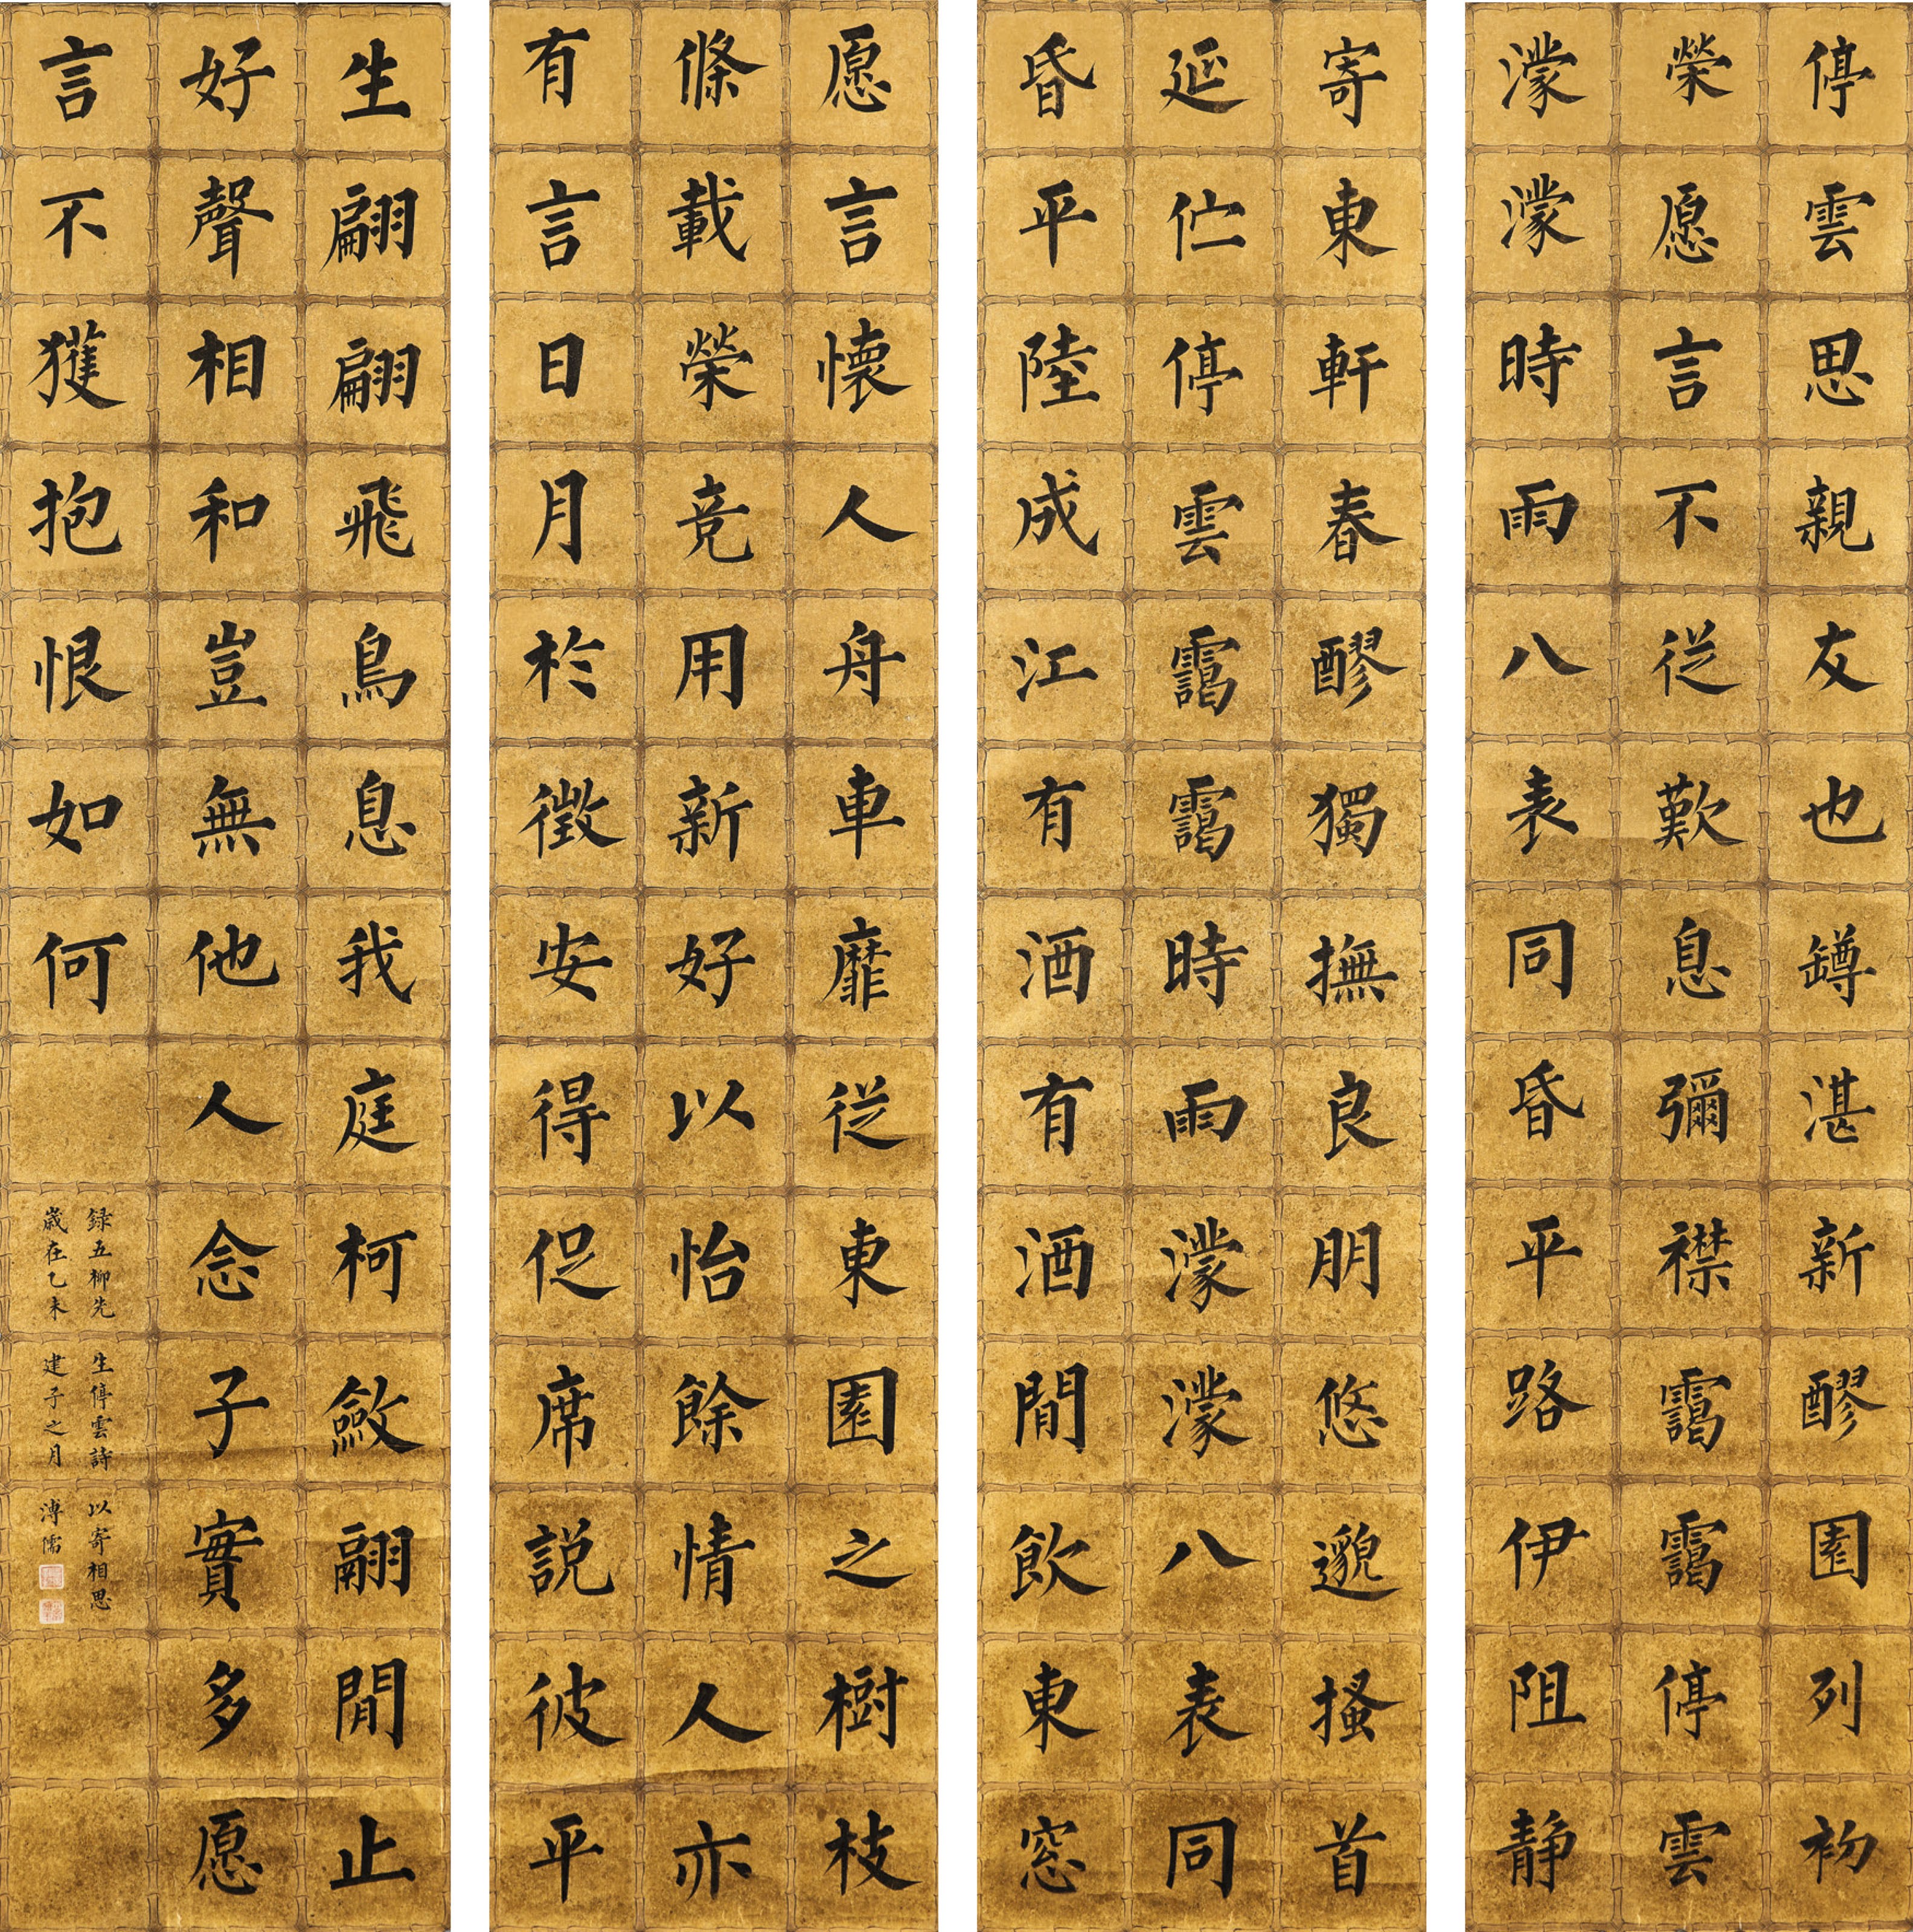 停雲思親友也罇湛新醪園列初
榮愿言不従歎息彌襟靄靄停雲
濛濛時雨八表同昏平路伊阻静
寄東軒春醪獨撫良朋悠邈搔首
延伫停雲靄靄時雨濛濛八表同
昏平陸成江有酒有酒閒飲東窓
愿言懐人舟車靡従東園之樹枝
條載榮竞用新好以怡餘情人亦
有言日月於徵安得促席説彼平
生翩翩飛鳥息我庭柯斂翮閒止
好聲相和豈無他人念子實多愿
言不獲抱恨如何
録五柳先生停雲詩以寄相思
歲在乙未建子之月溥儒